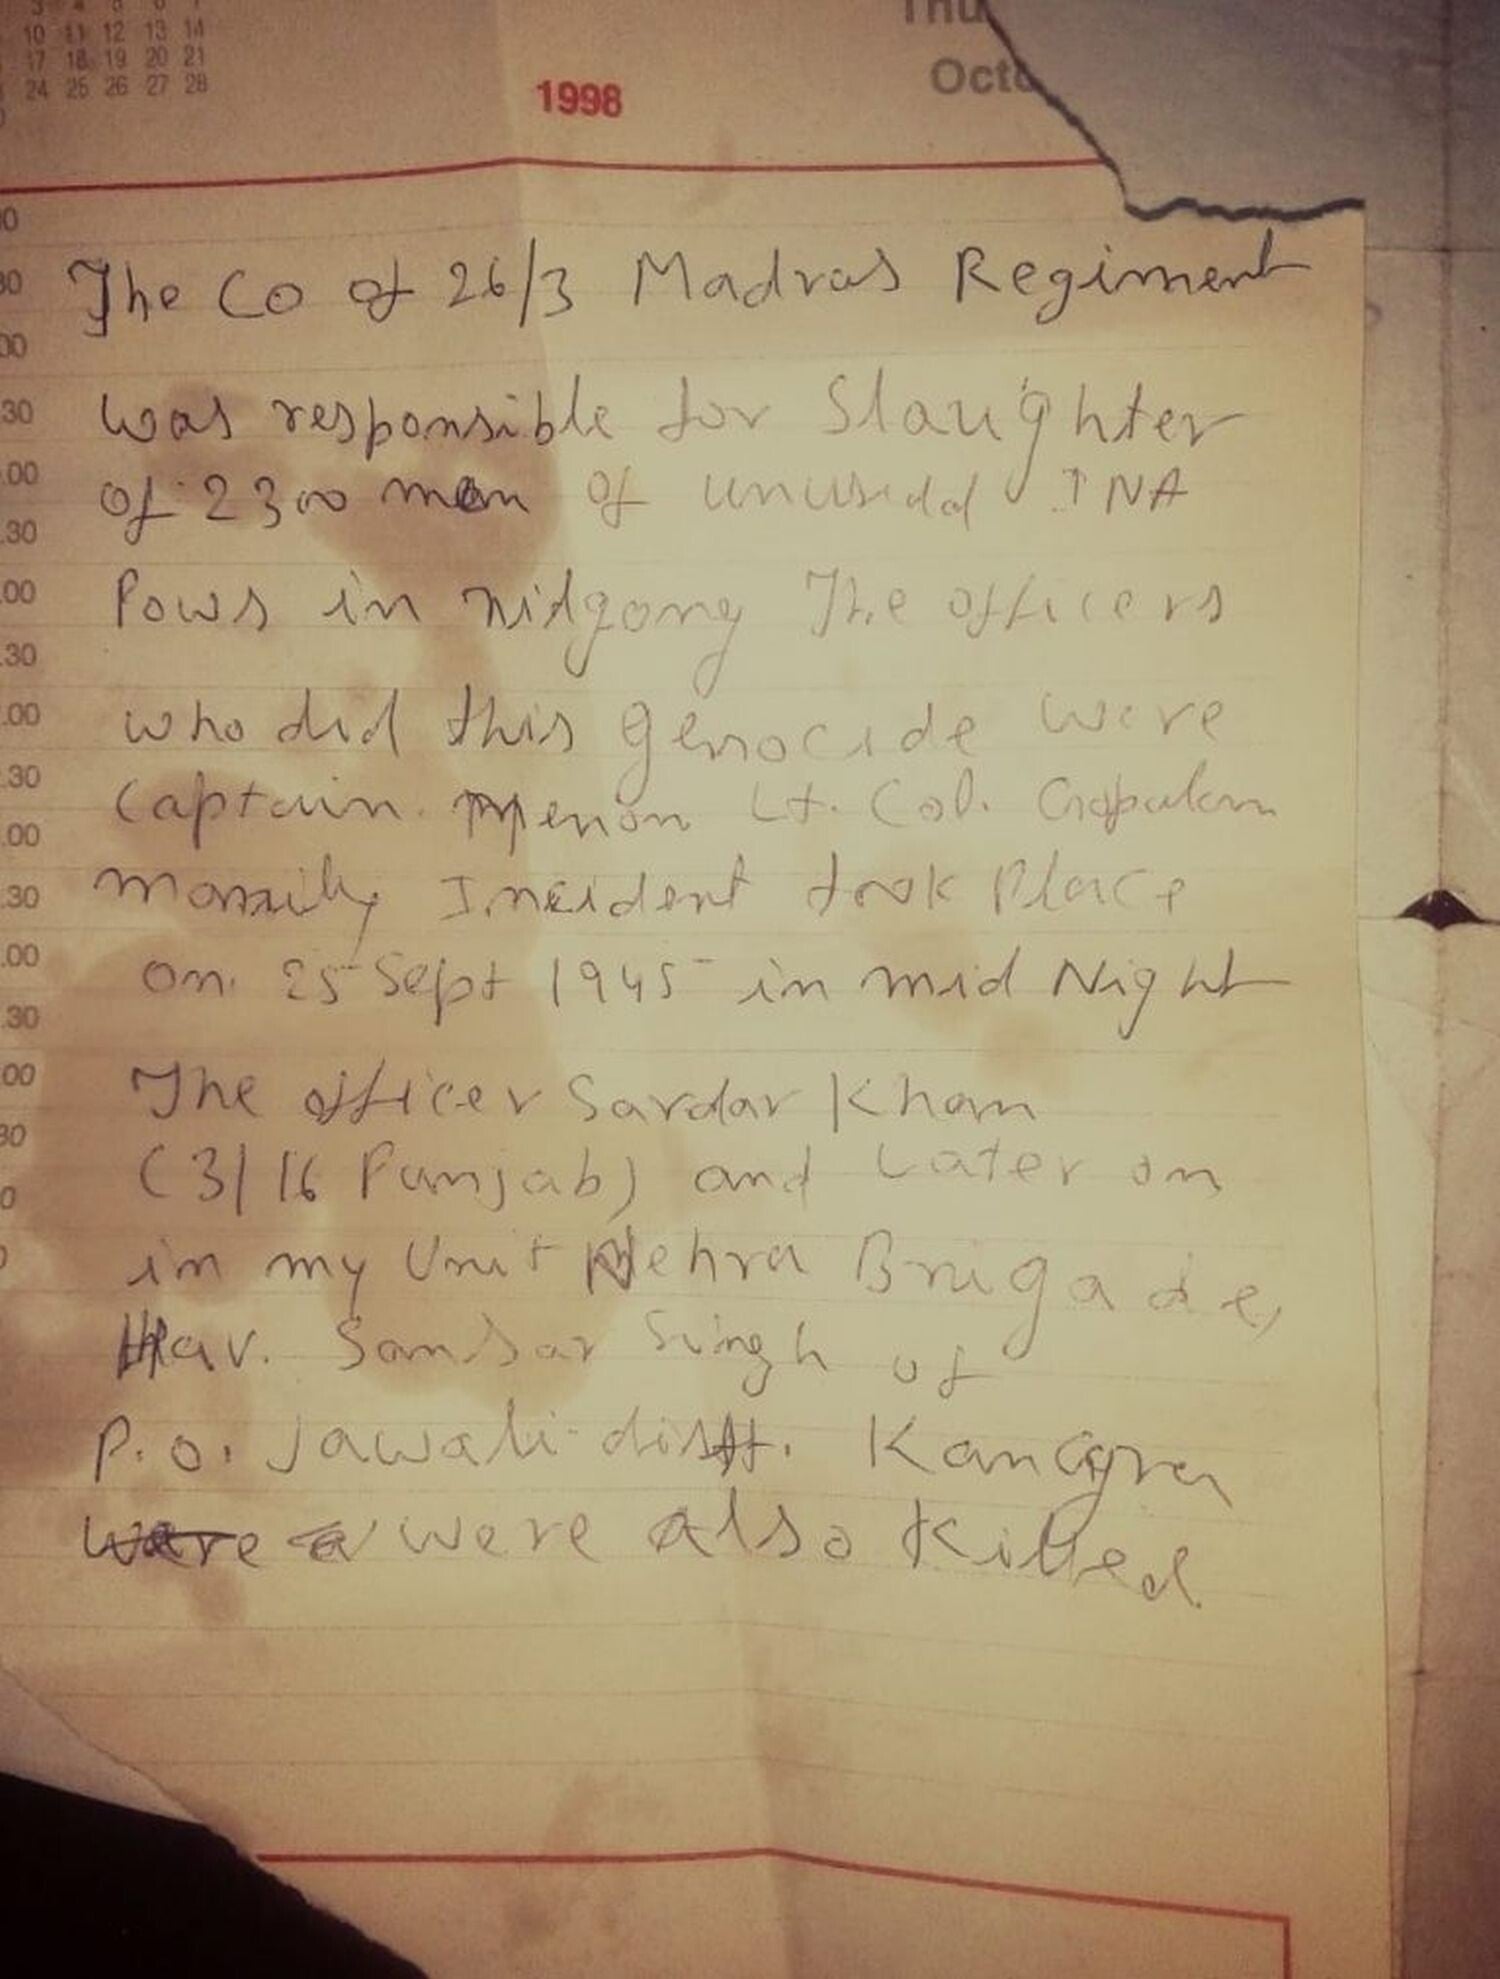 3 4 5 6 7
10 11 12 13 14
17 18 19 20 21
24 25 26 27 28
1998
Thu
Octo
The Co of 26/3 Madras Regiment
was responsible for Slaughter
of 2300 men of INA
Pows in nidgong The officers
who did this genocide were
Captain Menon Lt. Col. Gopalan
Incident took place
on 25 Sept 1945 in mid Night
The officer Sardar Khan
(3/16 Punjab) and Later on
in my Unit Nehra Brigade,
Hav. Sansar Singh of
P.O. Jawali distt. Kangra
were also Killed